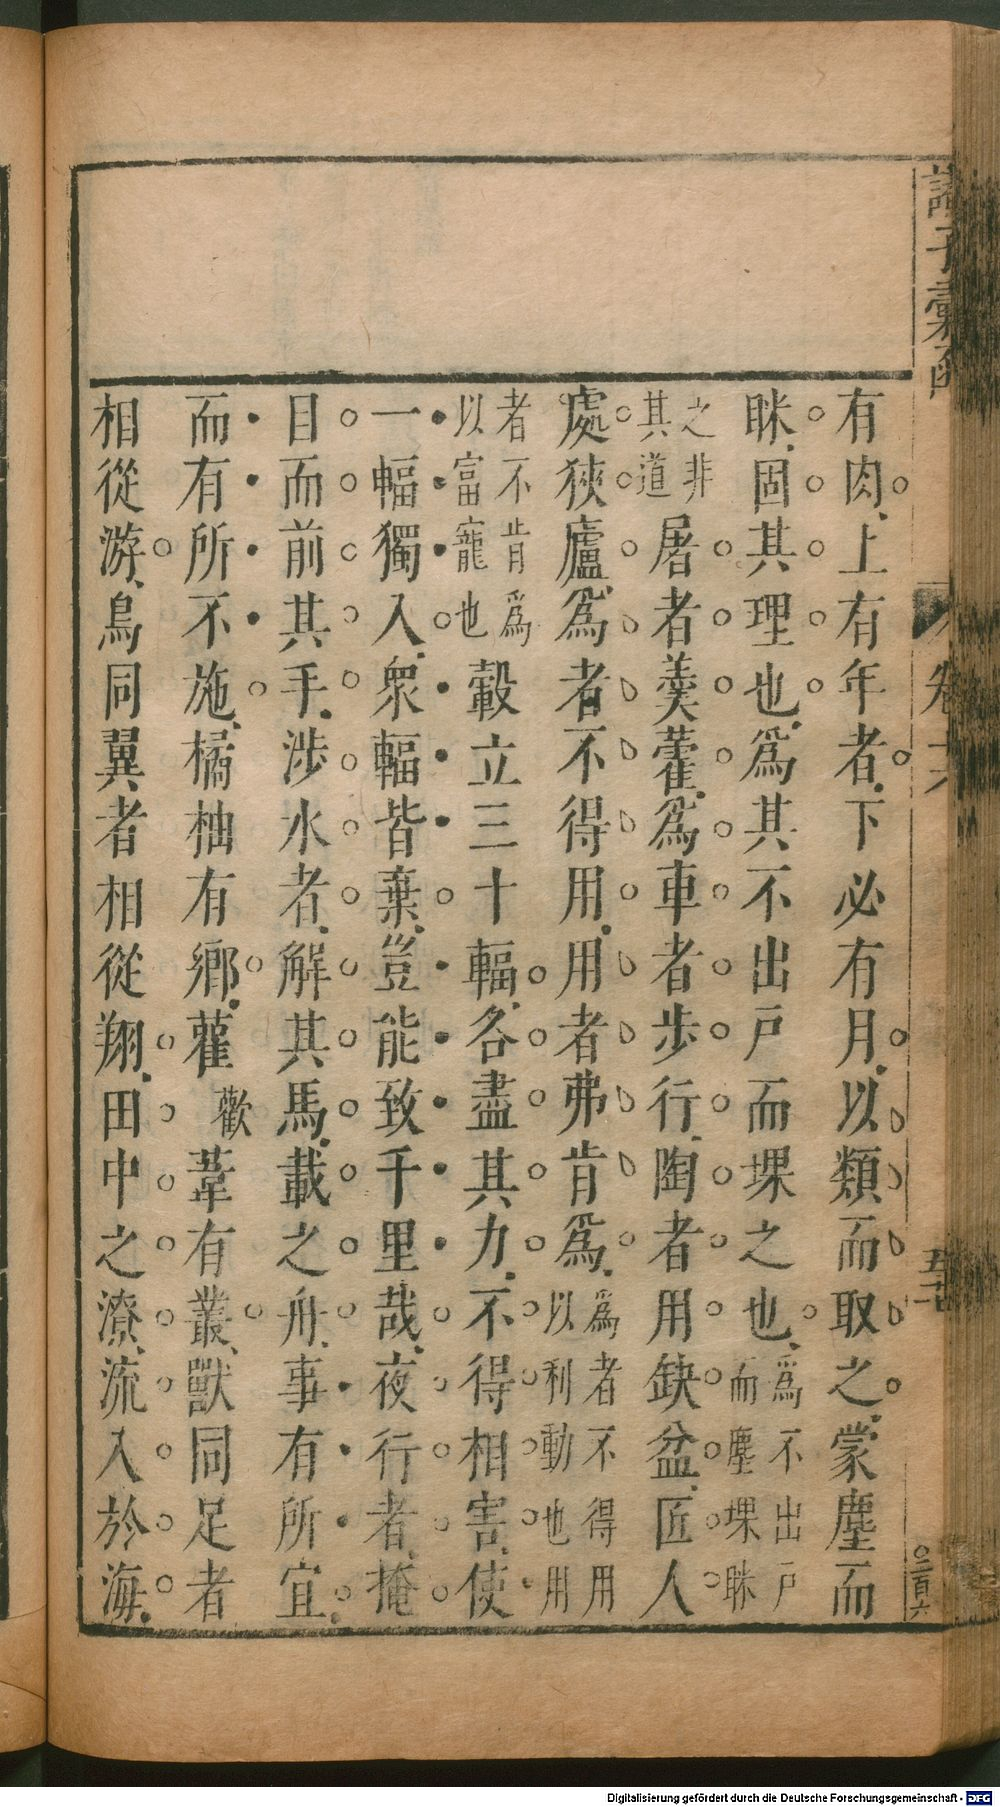 諸子彙函
卷十六
五十七
○二百六
有肉上有年者下必有月以類而取之蒙塵而
眯固其理也爲其不出戶而堁之也爲不出戶而塵堁眯
之非其道屠者羹藿爲車者步行陶者用缺盆匠人
處狹廬爲者不得用用者弗肯爲爲者不得用以利動也用
者不肯爲以富寵也轂立三十輻各盡其力不得相害使
一輻獨入衆輻皆棄豈能致千里哉夜行者掩
目而前其手涉水者解其馬載之舟事有所宜
而有所不施橘柚有鄉雚歡葦有叢獸同足者
相從游鳥同翼者相從翔田中之潦流入於海
Digitalisierung gefördert durch die Deutsche Forschungsgemeinschaft - DFG